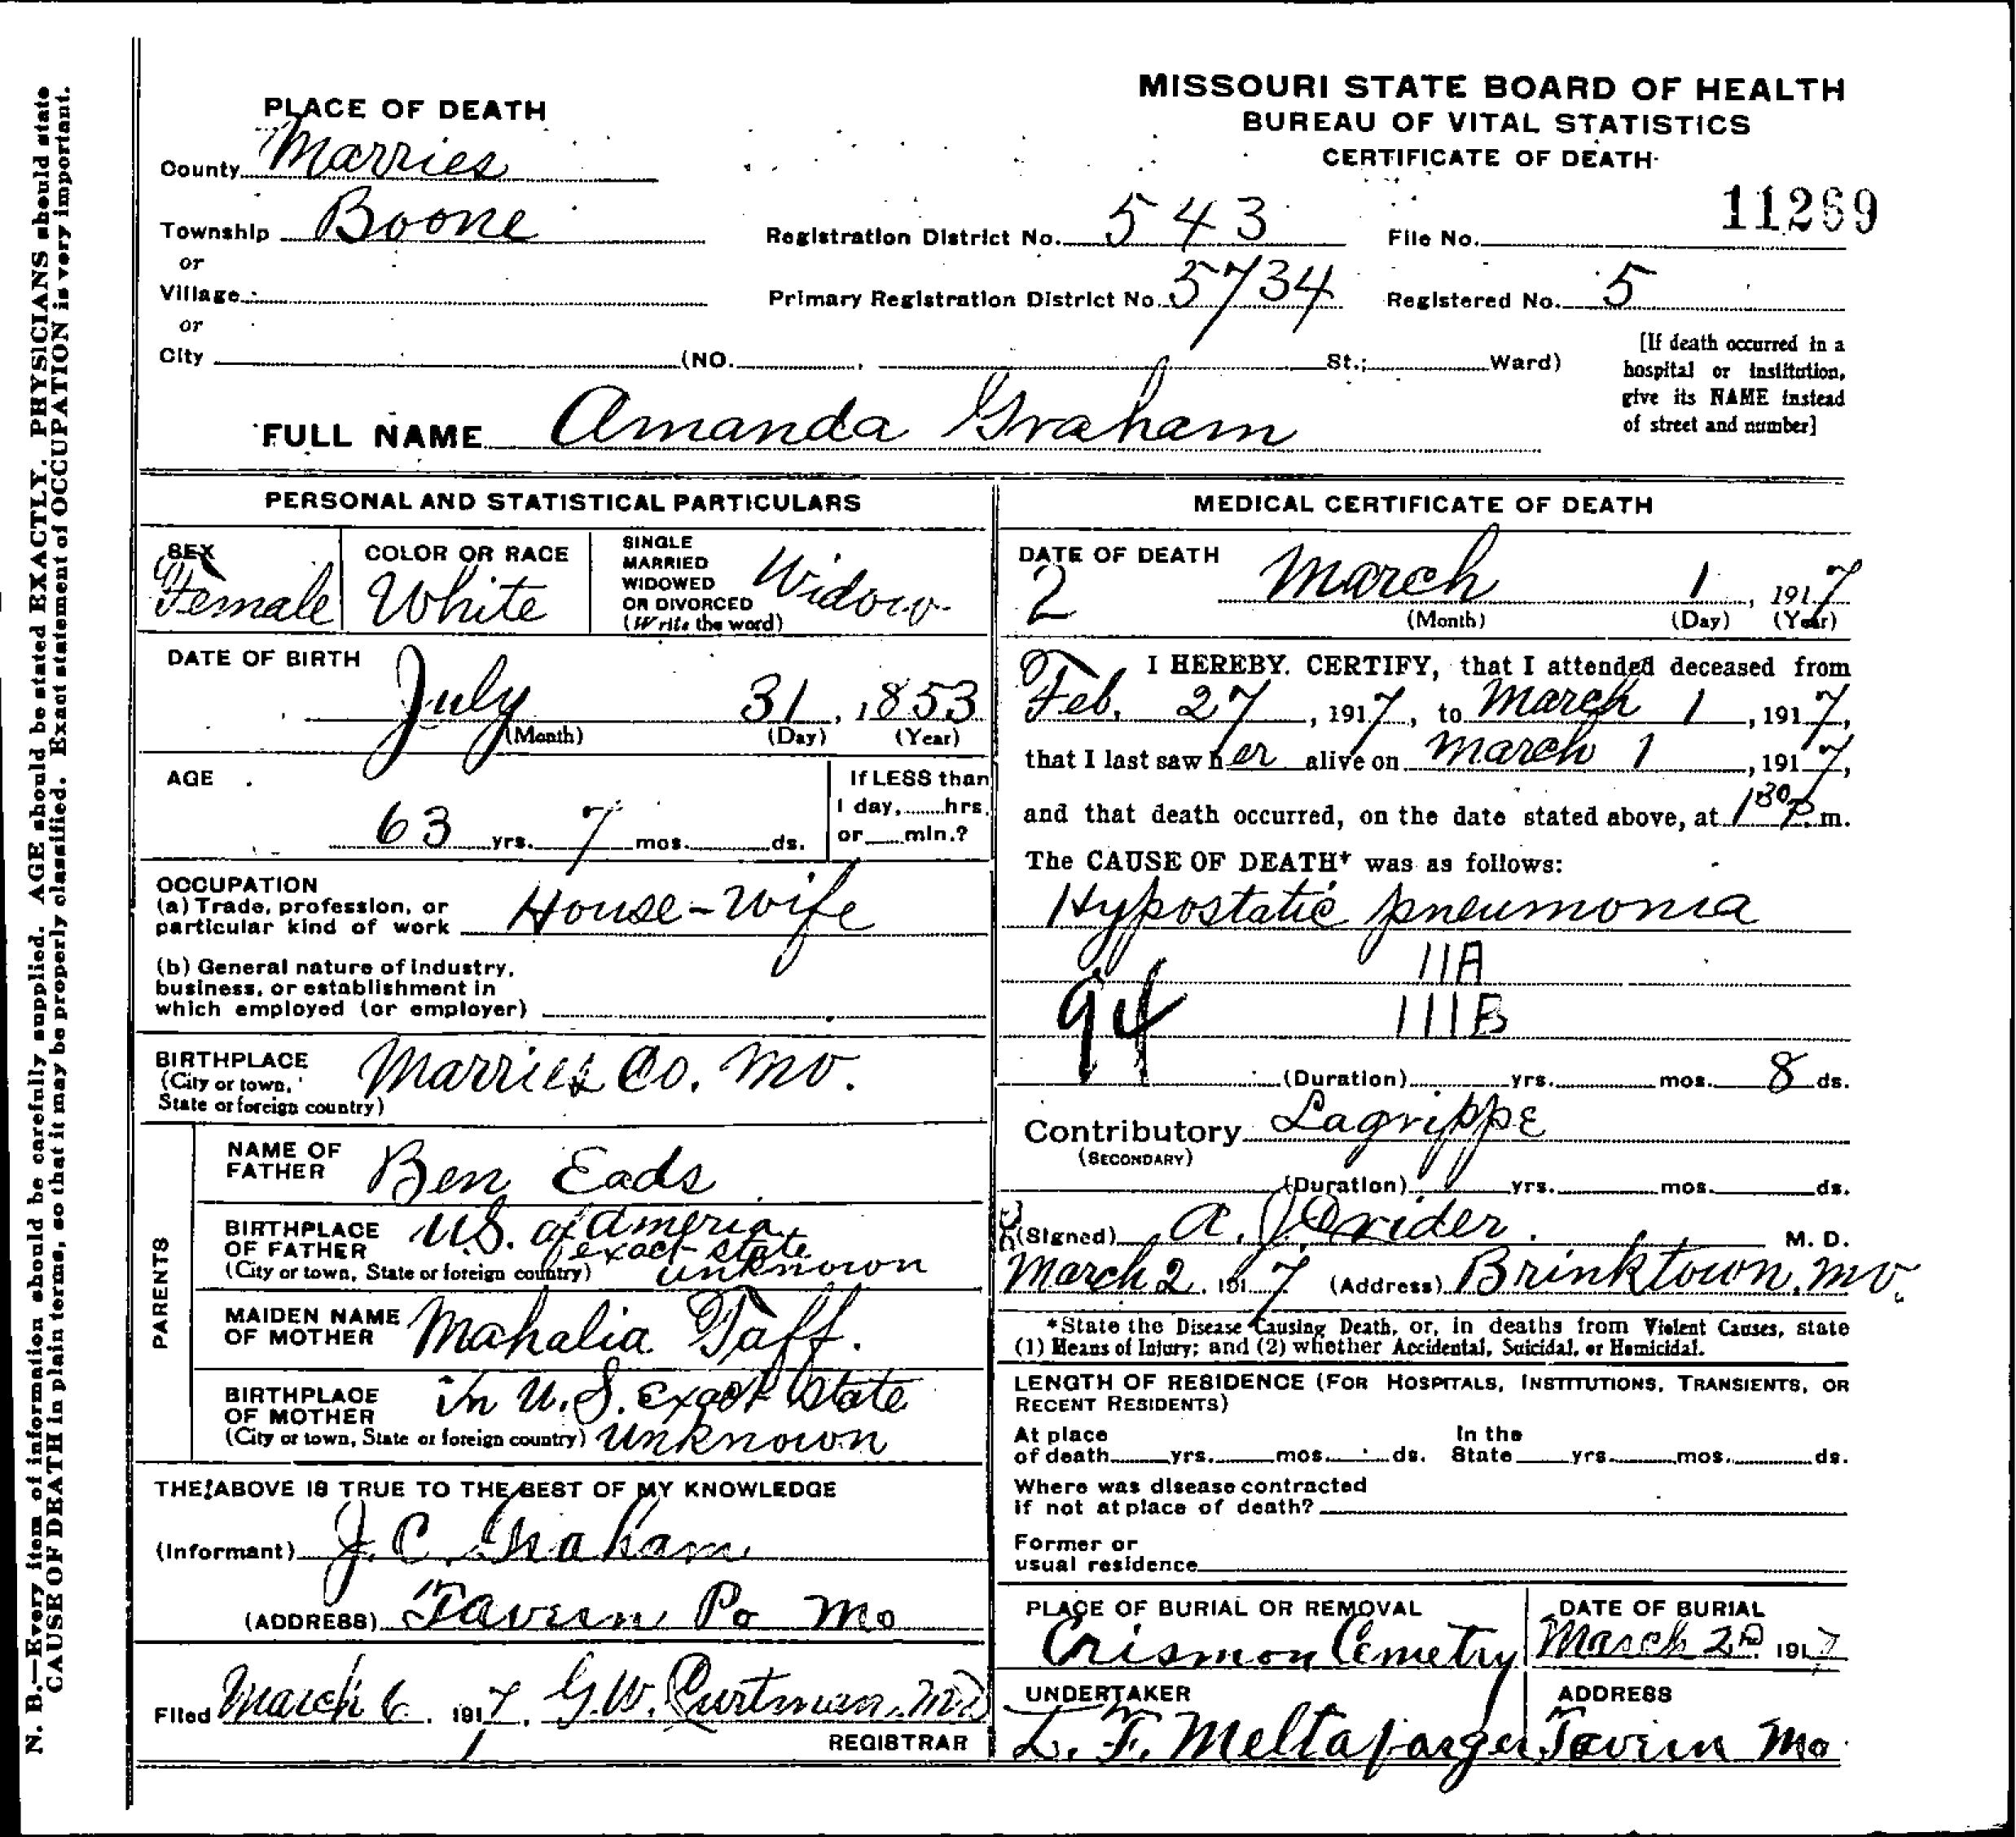 MISSOURI STATE BOARD OF HEALTH
BUREAU OF VITAL STATISTICS
CERTIFICATE OF DEATH
PLACE OF DEATH
County Marries
Township Boone
or
Village
or
City (NO. , St.; Ward)
Registration District No. 543
File No. 11269
Primary Registration District No. 5734
Registered No. 5
[If death occurred in a
hospital or institution,
give its NAME instead
of street and number]
FULL NAME Amanda Graham
PERSONAL AND STATISTICAL PARTICULARS
SEX
Female
COLOR OR RACE
White
SINGLE
MARRIED
WIDOWED
OR DIVORCED
(Write the word)
Widow
DATE OF BIRTH
July 31, 1853
(Month) (Day) (Year)
AGE
63 yrs. 7 mos. ds.
If LESS than
1 day, hrs.
or min.?
OCCUPATION
(a) Trade, profession, or
particular kind of work House-wife
(b) General nature of industry,
business, or establishment in
which employed (or employer)
BIRTHPLACE
(City or town,
State or foreign country)
Marries Co. Mo.
PARENTS
NAME OF
FATHER
Ben Eads
BIRTHPLACE
OF FATHER
(City or town, State or foreign country)
U.S. of Ameria
exact state
unknown
MAIDEN NAME
OF MOTHER
Mahalia Taff.
BIRTHPLACE
OF MOTHER
(City or town, State or foreign country)
in U.S. Exact State
Unknown
THE ABOVE IS TRUE TO THE BEST OF MY KNOWLEDGE
(Informant) J.C. Graham
(ADDRESS) Tavern Po Mo
Filed March 6, 1917, G.W. MD
REGISTRAR
MEDICAL CERTIFICATE OF DEATH
DATE OF DEATH
2
March 1, 1917
(Month) (Day) (Year)
I HEREBY CERTIFY, that I attended deceased from
Feb. 27, 1917, to March 1, 1917,
that I last saw her alive on March 1, 1917,
and that death occurred, on the date stated above, at 1 30 P. m.
The CAUSE OF DEATH* was as follows:
Hypostatic pneumonia
11A
94 111B
(Duration) yrs. mos. 8 ds.
Contributory Lagrippe
(SECONDARY)
(Duration) yrs. mos. ds.
(Signed) A. J. Crider. M. D.
March 2, 1917 (Address) Brinktown, Mo.
*State the Disease Causing Death, or, in deaths from Violent Causes, state
(1) Means of Injury; and (2) whether Accidental, Suicidal, or Homicidal.
LENGTH OF RESIDENCE (FOR HOSPITALS, INSTITUTIONS, TRANSIENTS, OR
RECENT RESIDENTS)
At place
of death yrs. mos. ds.
In the
State yrs. mos. ds.
Where was disease contracted
if not at place of death?
Former or
usual residence
PLACE OF BURIAL OR REMOVAL
Crismon Cemetry
DATE OF BURIAL
March 2nd 1917
UNDERTAKER
L. F.
ADDRESS
Tavern Mo
N. B.—Every item of information should be carefully supplied. AGE should be stated EXACTLY. PHYSICIANS should state
CAUSE OF DEATH in plain terms, so that it may be properly classified. Exact statement of OCCUPATION is very important.